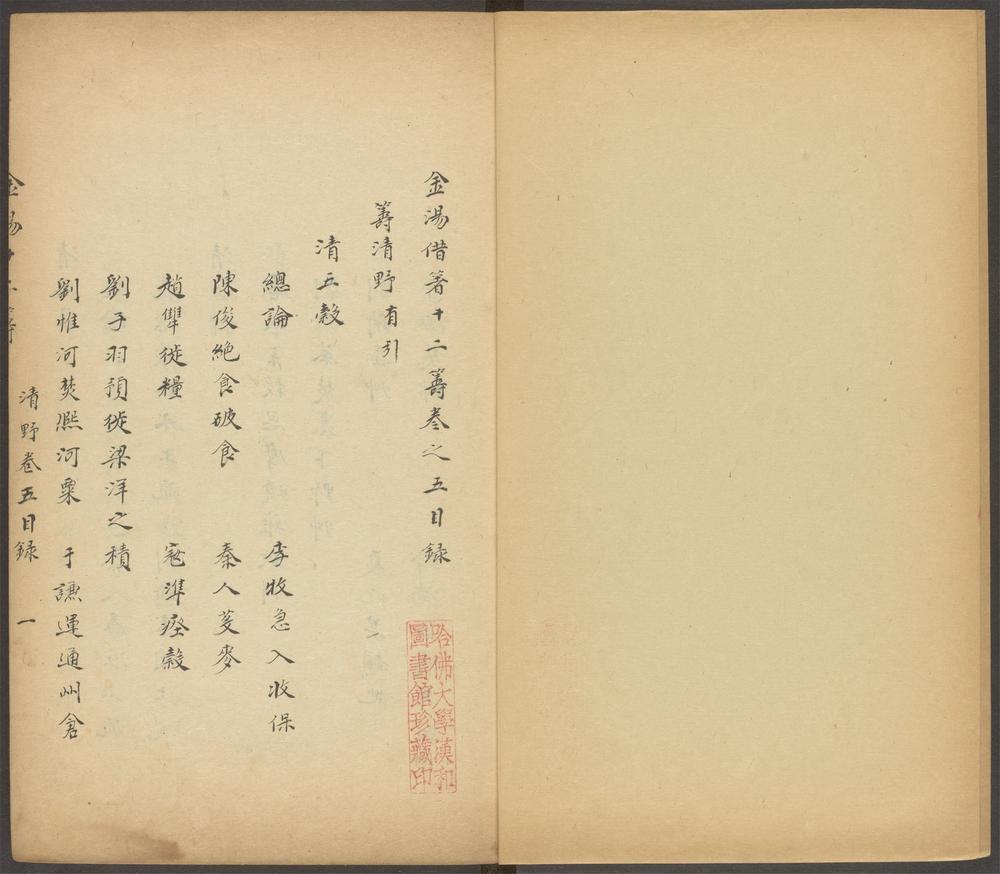 金湯借箸十二籌卷之五目錄
籌清野有引
清五穀
總論 李牧急入收保
陳俊絕食破食 秦人芟麥
趙犨徙糧 寇準瘞穀
劉子羽預徙梁洋之積
劉惟河焚熈河粟 于謙運通州倉
清野卷五目録 一
哈佛大學漢和
圖書館珍藏印